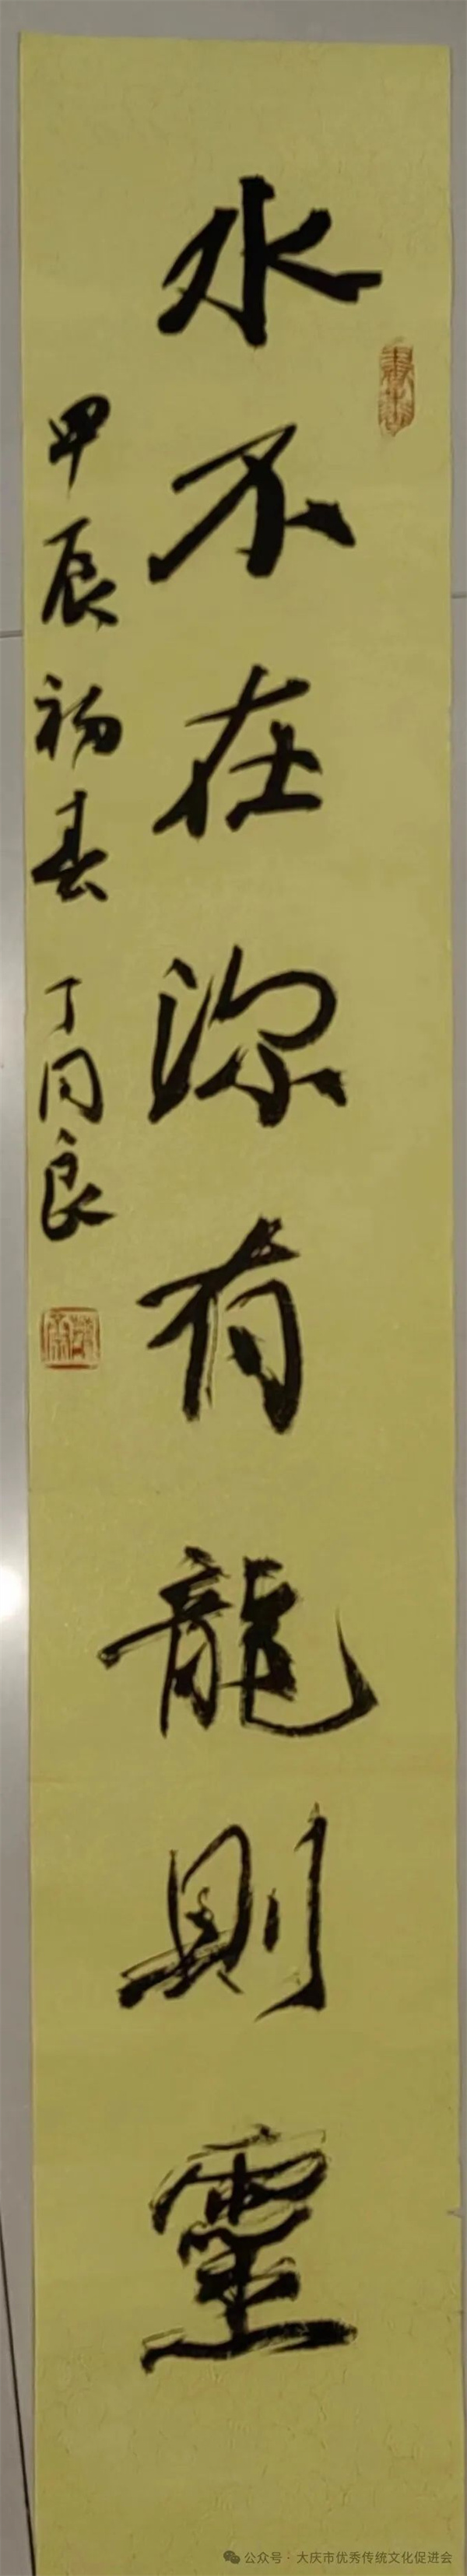 水不在深有龍則靈
甲辰初春 丁同良
公众号 · 大庆市优秀传统文化促进会